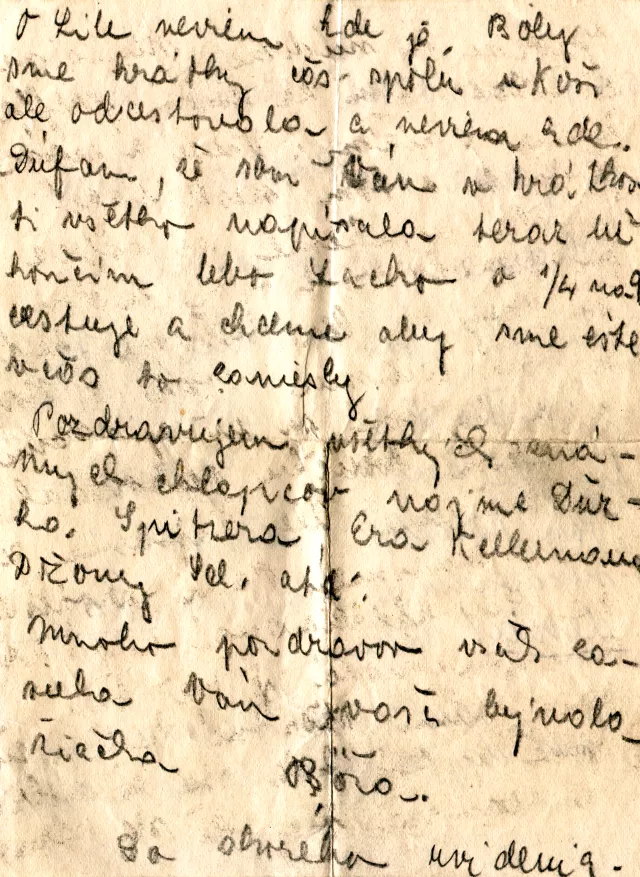 O Lile neviem kde je. Boly
sme krátky čas spolu v Koš
ale odcestovala a neviem kde.
Dúfam, že som Vám v krátkos
ti všetko napísala teraz už
končím lebo Lacko o 1/4 na 9
cestuje a chceme aby sme ešte
včas to zaniesly
Pozdravujem všetkých zná-
mych chlapcov najme Ďur-
ko. Spitzera Era Kellermana
Džony atď.
Mnoho pozdravov všet. za-
siela Vám vaša bývala
žiačka
Böra.
Do skorého uvidenia.